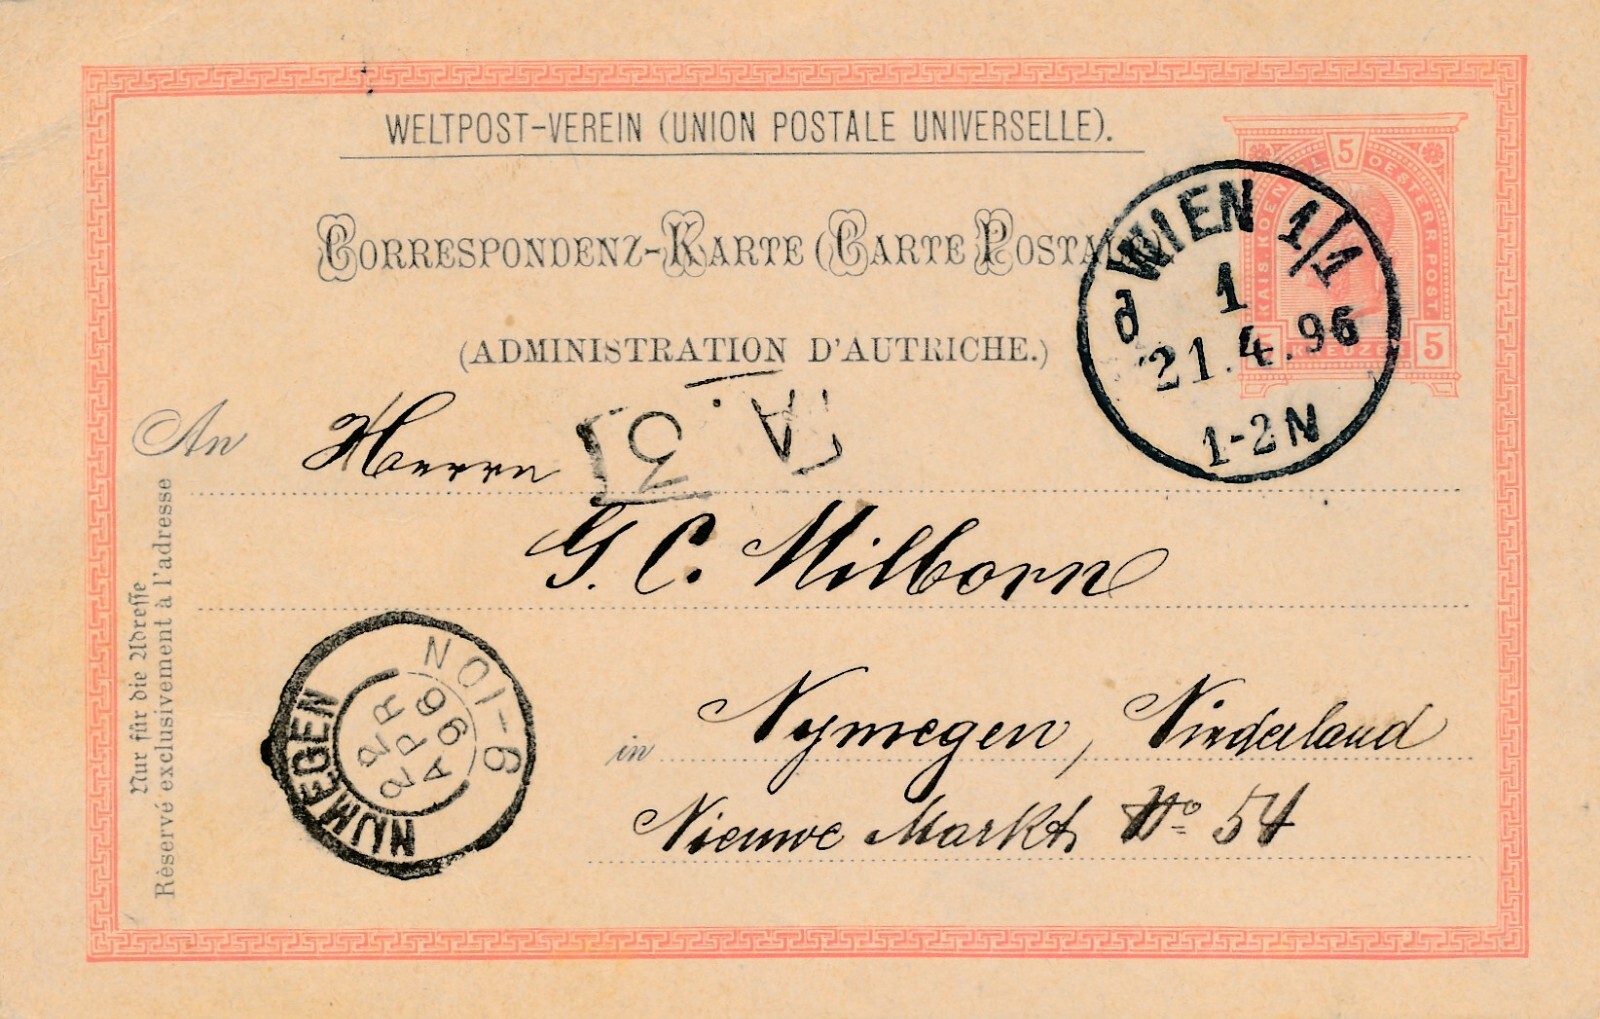 WELTPOST-VEREIN (UNION POSTALE UNIVERSELLE).
CORRESPONDENZ-KARTE (CARTE POSTALE)
(ADMINISTRATION D'AUTRICHE.)
KAIS. KOENIGL. OESTERR. POST
5
5 KREUZER 5
WIEN 1/1
d
1
21.4.96
1-2N
An Herrn
A.
3
G. C. Milborn
in Nymegen, Niederland
Nieuwe Markt No 54
NIJMEGEN
22 APR 96
9-10N
Nur für die Adresse
Réservé exclusivement à l'adresse